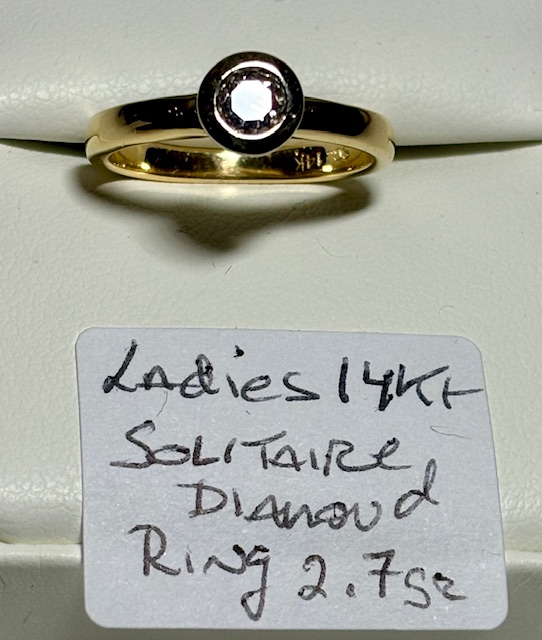 14K
Ladies 14Kt
Solitaire
Diamond
Ring 2.7gr